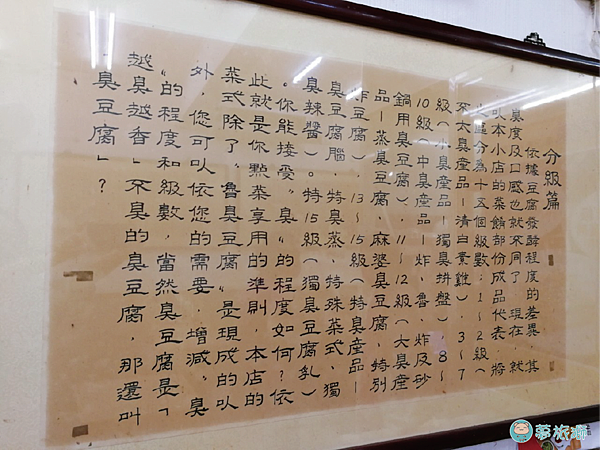 分級篇
依據豆腐發酵程度的差異，其
臭度及口感也就不同了，現在，就
以本小店的菜餚部份成品代表，將
區分為十五個級數：1～2級（
不太臭產品－清白素雞）3～7
級（小臭產品－獨臭拼盤）8～
10級（中臭產品－炸、魯、炸及砂
鍋用臭豆腐），11～12級（大臭產
品－蒸臭豆腐、麻婆臭豆腐、特別
炸豆腐），13～15級（特臭產品－
臭豆腐腦、特臭蒸、特殊菜式、獨
臭辣醬）。特15級（獨臭豆腐乳）
"你能接受"臭"的程度如何？依
此就是你點菜享用的準則，本店的
菜式除了"魯臭豆腐"是現成的以
外，您可以依您的需要，增減"臭
"的程度和級數，當然臭豆腐是「
越臭越香」不臭的臭豆腐，那還叫
「臭豆腐」？